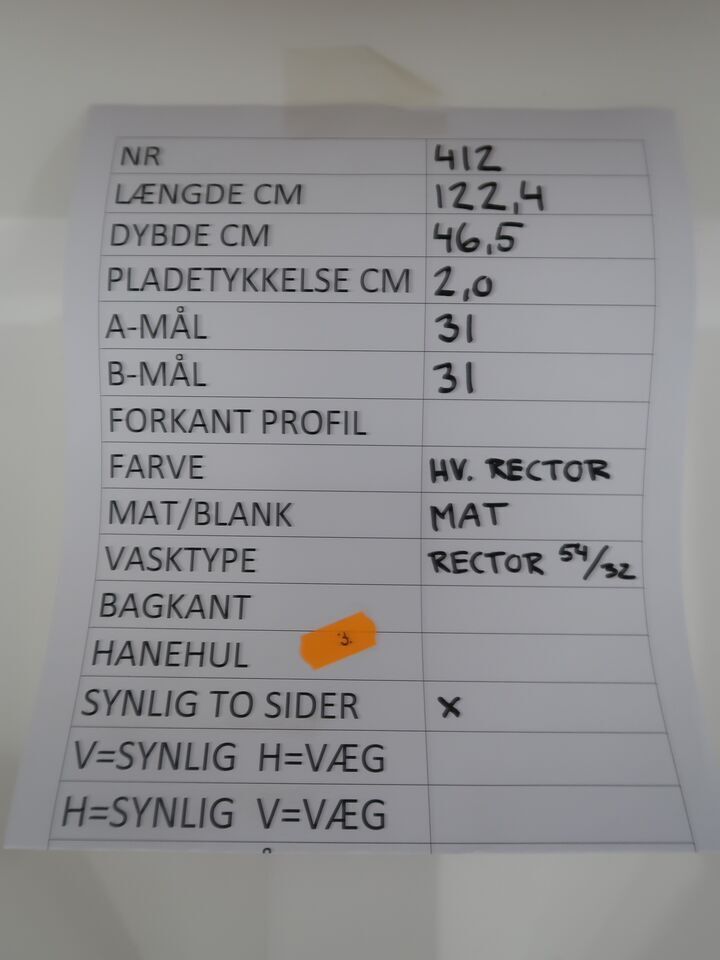 NR 412
LÆNGDE CM 122,4
DYBDE CM 46,5
PLADETYKKELSE CM 2,0
A-MÅL 31
B-MÅL 31
FORKANT PROFIL
FARVE HV. RECTOR
MAT/BLANK MAT
VASKTYPE RECTOR 54/32
BAGKANT
3.
HANEHUL
SYNLIG TO SIDER X
V=SYNLIG H=VÆG
H=SYNLIG V=VÆG